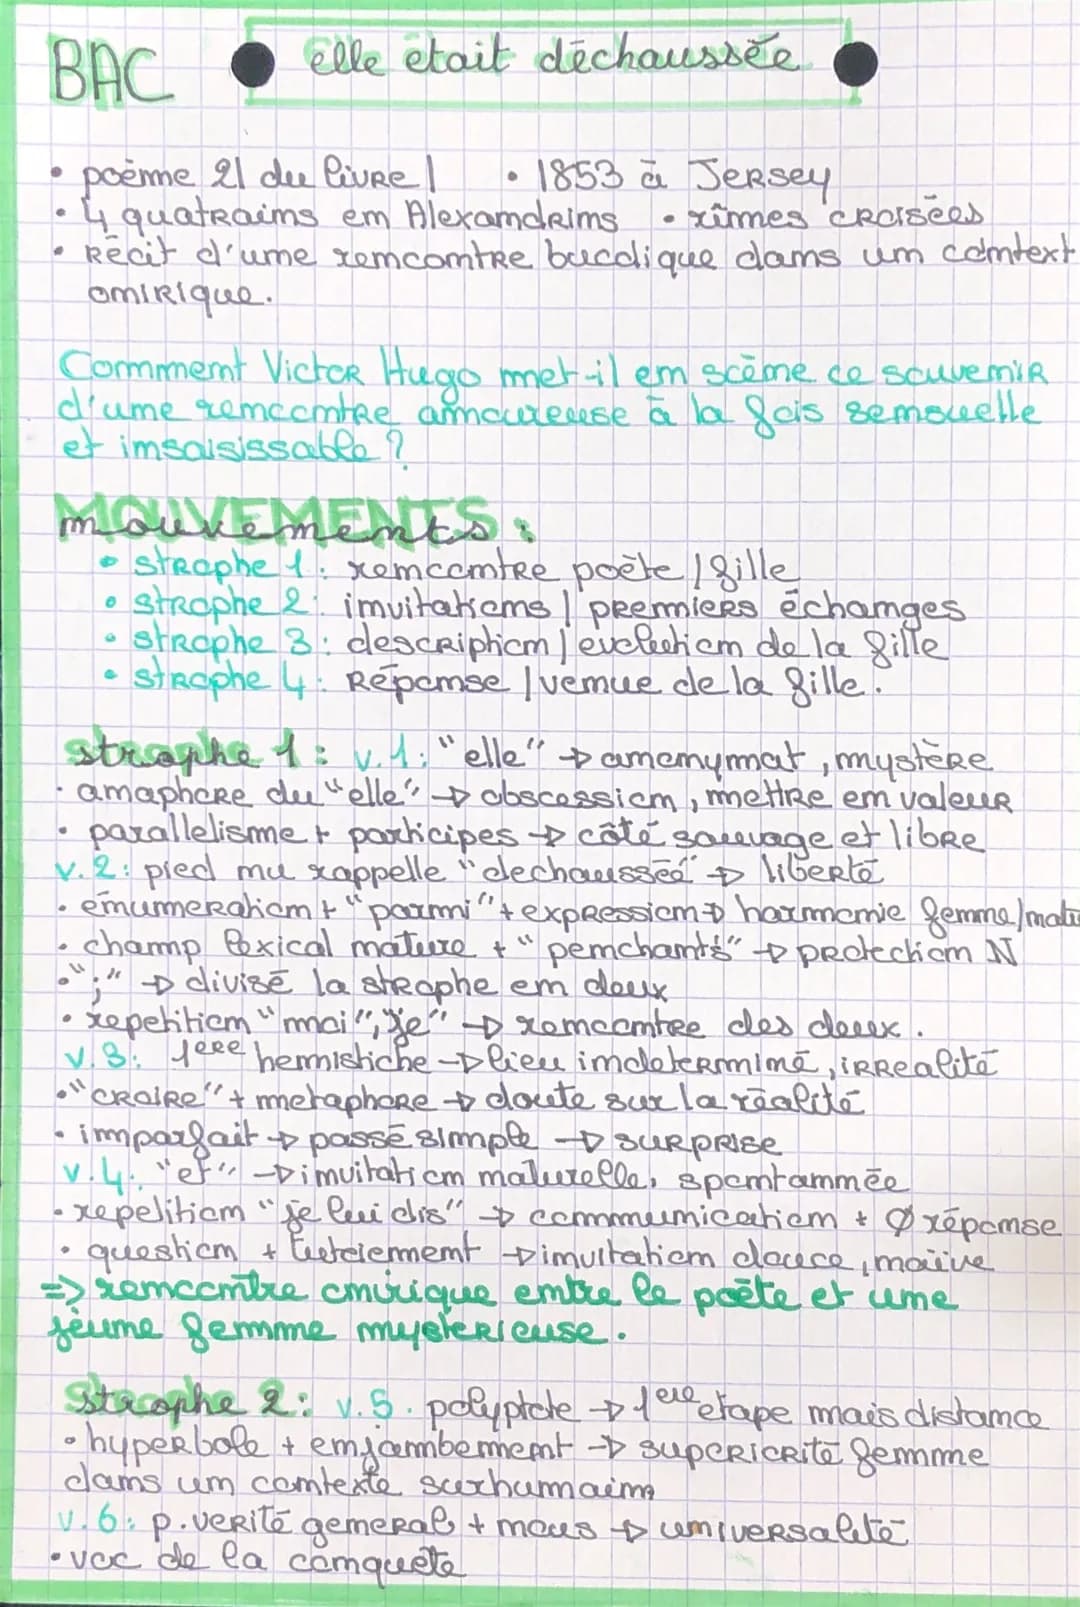 BAC
elle était déchaussée
• poème 21 du livre I • 1853 à Jersey
• 4 quatrains en Alexandrins • rimes croisées
• Récit d'une rencontre bucolique dans un context
onirique.
Comment Victor Hugo met-il en scène ce souvenir
d'une rencontre amoureuse à la fois sensuelle
et insaisissable ?
MOUVEMENTS
mouvements :
• strophe 1 : rencontre poète / fille
• strophe 2 : invitations / premiers échanges
• strophe 3 : description / evolution de la fille
• strophe 4 : Réponse / venue de la fille.
strophe 1 : v.1 : "elle" → anonymat, mystère
• anaphore du "elle" → obscession, mettre en valeur
• parallelisme + participes → côté sauvage et libre
v.2 : pied nu rappelle "dechaussée" → liberté
• énumeration + "parmi" + expression → harmonie femme/natu
• champ lexical nature + "penchants" → protection N
• ";" → divisé la strophe en deux
• repetition "moi", "je" → rencontre des deux.
v.3 : 1ere hemistiche → lieu indeterminé, irrealité
• "croire" + metaphore → doute sur la réalité
• imparfait → passé simple → surprise
v.4 : "et" → invitation naturelle, spontannée
• repetition "je lui dis" → communication + Ø réponse
• question + tutoiement → invitation douce, naïve
=> rencontre onirique entre le poète et une
jeune femme mysterieuse.
strophe 2 : v.5 . polyptote → 1ere etape mais distance
• hyperbole + enjambement → superiorité femme
dans un contexte surhumain
v.6 : p. verité general + nous → universalité
• voc de la conquête